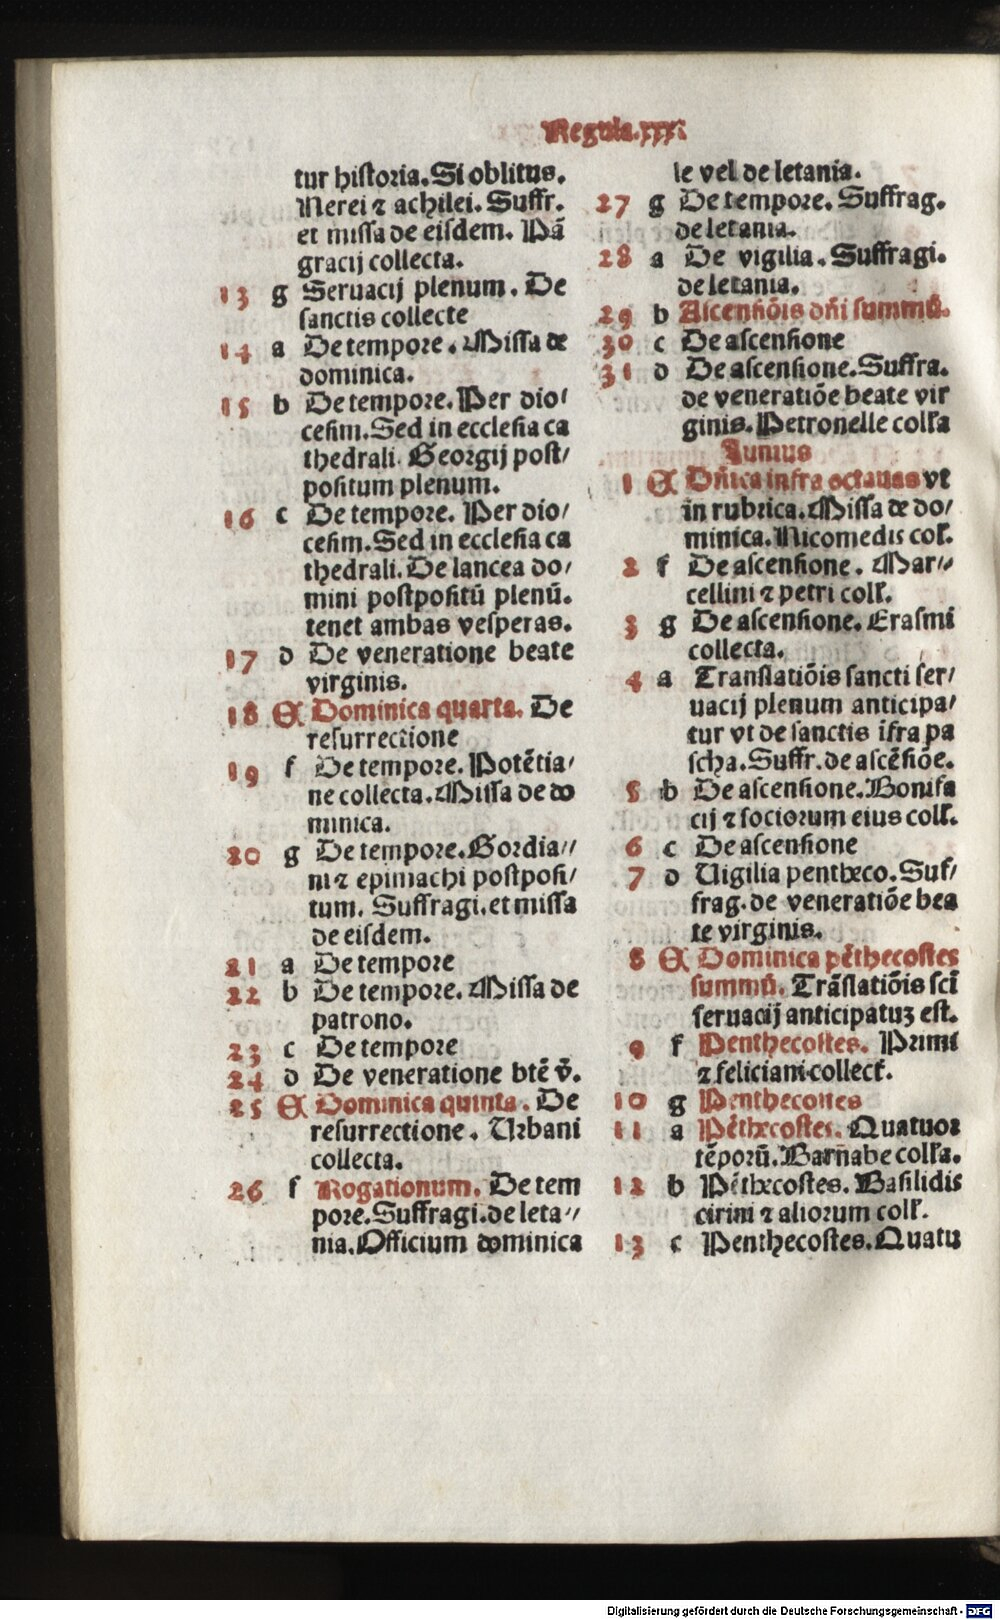 Regula.xxx.
tur historia. Si oblitus.
Nerei ⁊ achilei. Suffr.
et missa de eisdem. Pā
gracij collecta.
13 g Seruacij plenum. De
sanctis collecte
14 a De tempore. Missa de
dominica.
15 b De tempore. Per dio/
cesim. Sed in ecclesia ca
thedrali. Georgij post/
positum plenum.
16 c De tempore. Per dio/
cesim. Sed in ecclesia ca
thedrali. De lancea do/
mini postpositū plenū.
tenet ambas vesperas.
17 d De veneratione beate
virginis.
18 A Dominica quarta. De
resurrectione
19 f De tempore. Potētia/
ne collecta. Missa de do
minica.
20 g De tempore. Gordia//
ni ⁊ epimachi postposi/
tum. Suffragi. et missa
de eisdem.
21 a De tempore
22 b De tempore. Missa de
patrono.
23 c De tempore
24 d De veneratione btē v̄.
25 A Dominica quinta. De
resurrectione. Urbani
collecta.
26 f Rogationum. De tem
pore. Suffragi. de leta//
nia. Officium dominica
le vel de letania.
27 g De tempore. Suffrag.
de letania.
28 a De vigilia. Suffragi.
de letania.
29 b Ascensiōis dn̄i summū.
30 c De ascensione
31 d De ascensione. Suffra.
de veneratiōe beate vir
ginis. Petronelle coll'a
Junius
1 A Dn̄ica infra octauas vt
in rubrica. Missa de do/
minica. Nicomedis col'.
2 f De ascensione. Mar//
cellini ⁊ petri coll'.
3 g De ascensione. Erasmi
collecta.
4 a Translatiōis sancti ser/
uacij plenum anticipa/
tur vt de sanctis īfra pa
scha. Suffr. de ascēsiōe.
5 b De ascensione. Bonifa
cij ⁊ sociorum eius coll'.
6 c De ascensione
7 d Uigilia pentheco. Suf/
frag. de veneratiōe bea
te virginis.
8 A Dominica pēthecostes
summū. Trāslatiōis scī
seruacij anticipatuʒ est.
9 f Penthecostes. Primi
⁊ feliciani collect'.
10 g Penthecostes
11 a Pēthecostes. Quatuor
tēporū. Barnabe coll'a.
12 b Pēthecostes. Basilidis
cirini ⁊ aliorum coll'.
13 c Penthecostes. Quatu
Digitalisierung gefördert durch die Deutsche Forschungsgemeinschaft - DFG